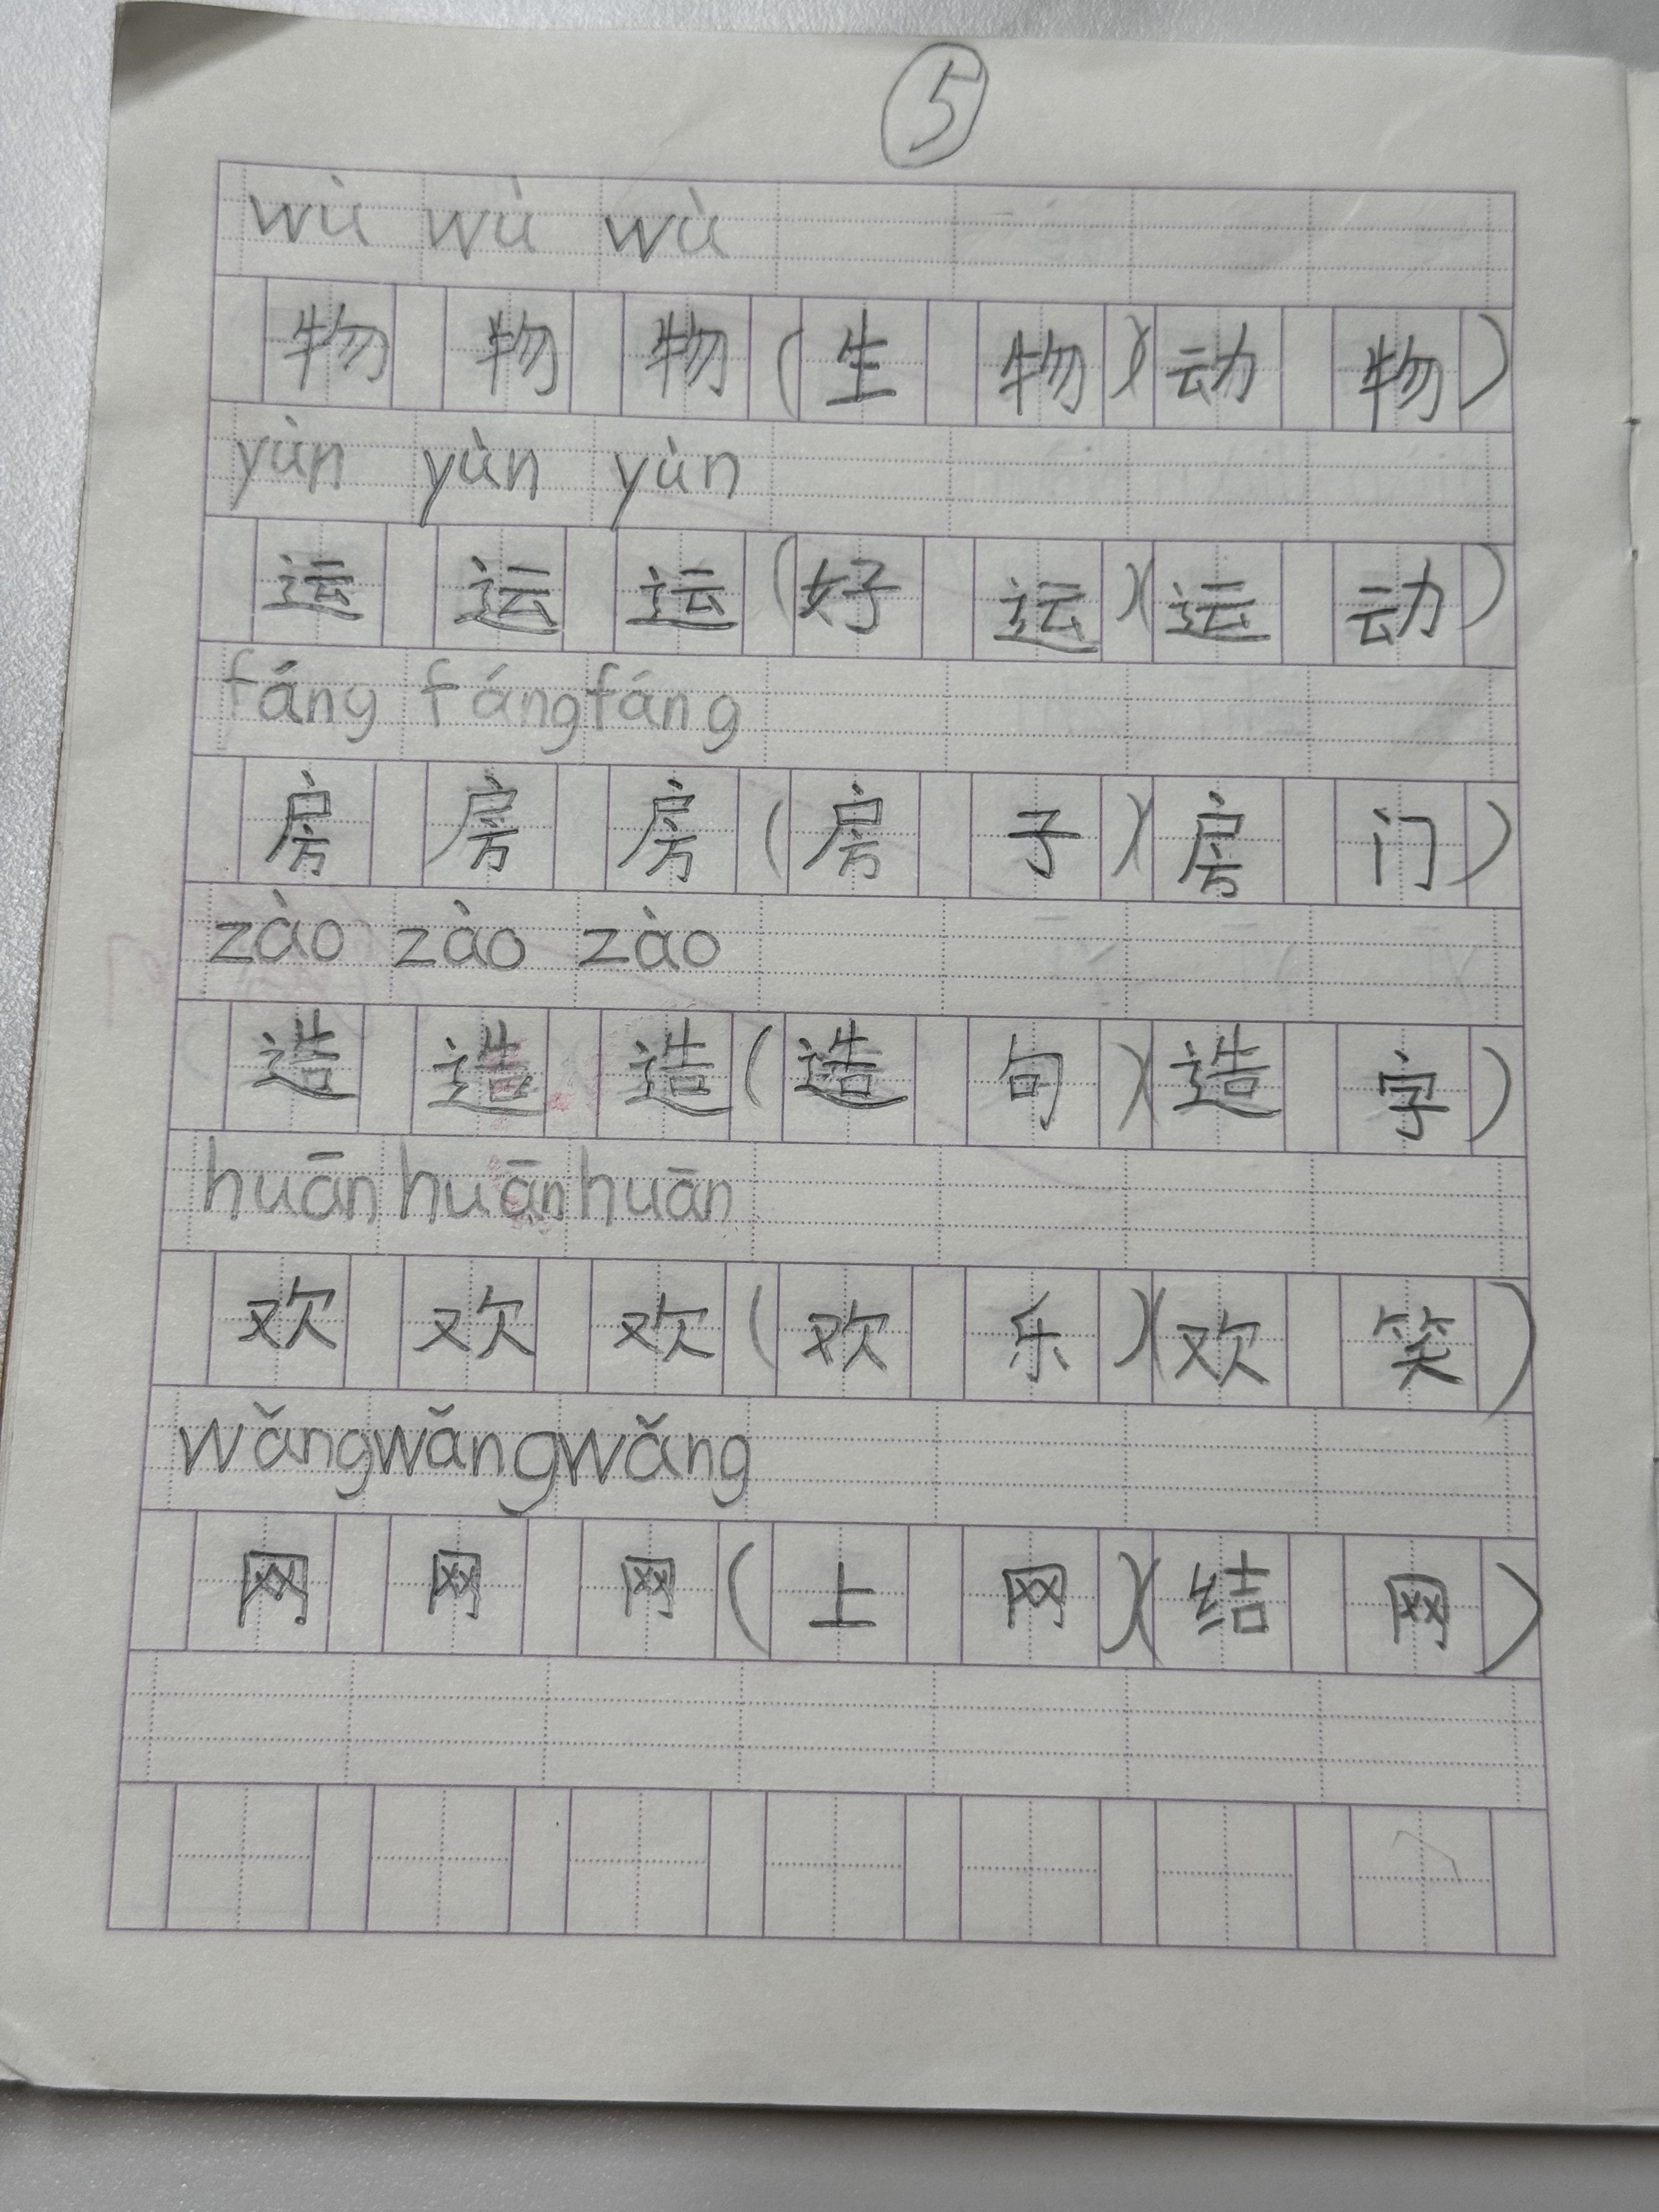 ⑤
wù wù wù
物 物 物 (生 物)(动 物)
yùn yùn yùn
运 运 运 (好 运)(运 动)
fáng fáng fáng
房 房 房 (房 子)(房 门)
zào zào zào
造 造 造 (造 句)(造 字)
huān huān huān
欢 欢 欢 (欢 乐)(欢 笑)
wǎng wǎng wǎng
网 网 网 (上 网)(结 网)